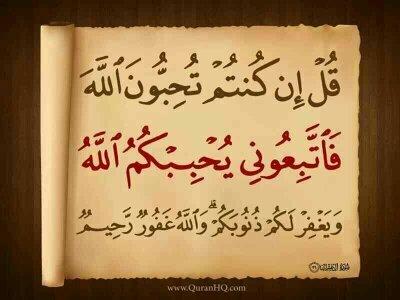 قُلْ إِن كُنتُمْ تُحِبُّونَ ٱللَّهَ
فَٱتَّبِعُونِي يُحْبِبْكُمُ ٱللَّهُ
وَيَغْفِرْ لَكُمْ ذُنُوبَكُمْ ۗ وَٱللَّهُ غَفُورٌ رَّحِيمٌ
www.QuranHQ.com